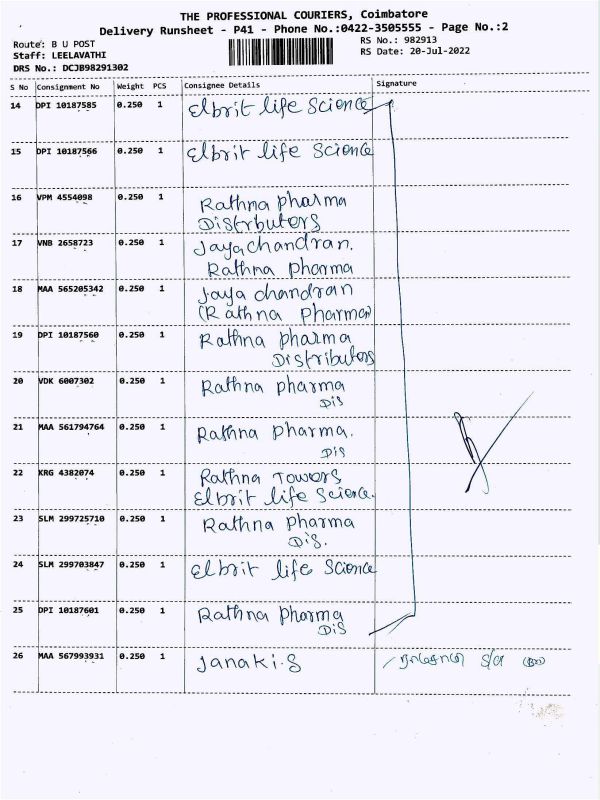 THE PROFESSIONAL COURIERS, Coimbatore
Delivery Runsheet - P41 - Phone No.:0422-3505555 - Page No.:2
Route: B U POST
RS No.: 982913
Staff: LEELAVATHI
RS Date: 20-Jul-2022
DRS No.: DCJB98291302
S No Consignment No Weight PCS Consignee Details Signature
14 DPI 10187585 0.250 1 Elbrit life Science
15 DPI 10187566 0.250 1 Elbrit life Science
16 VPM 4554098 0.250 1 Rathna pharma
Distrbutors
17 VNB 2658723 0.250 1 Jayachandran.
Rathna Pharma
18 MAA 565205342 0.250 1 Jaya chandran
(Rathna Pharma)
19 DPI 10187560 0.250 1 Rathna pharma
Distributors
20 VDK 6007302 0.250 1 Rathna pharma
Dis
21 MAA 561794764 0.250 1 Rathna pharma.
Dis
22 KRG 4382074 0.250 1 Rathna Towers
Elbrit life Science.
23 SLM 299725710 0.250 1 Rathna Pharma
Dis.
24 SLM 299703847 0.250 1 Elbrit life Science
25 DPI 10187601 0.250 1 Rathna pharma
Dis
26 MAA 567993931 0.250 1 Janaki.S